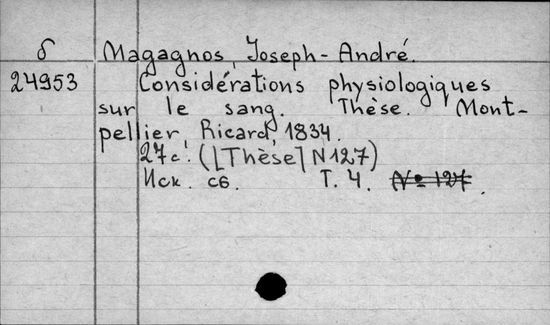 δ Magagnos, Joseph-André.
24953 Considérations physiologiques
sur le sang. Thèse. Mont-
pellier, Ricard, 1834.
27 с. ([Thèse] N 127)
Иск. сб. Т. 4. № 127.